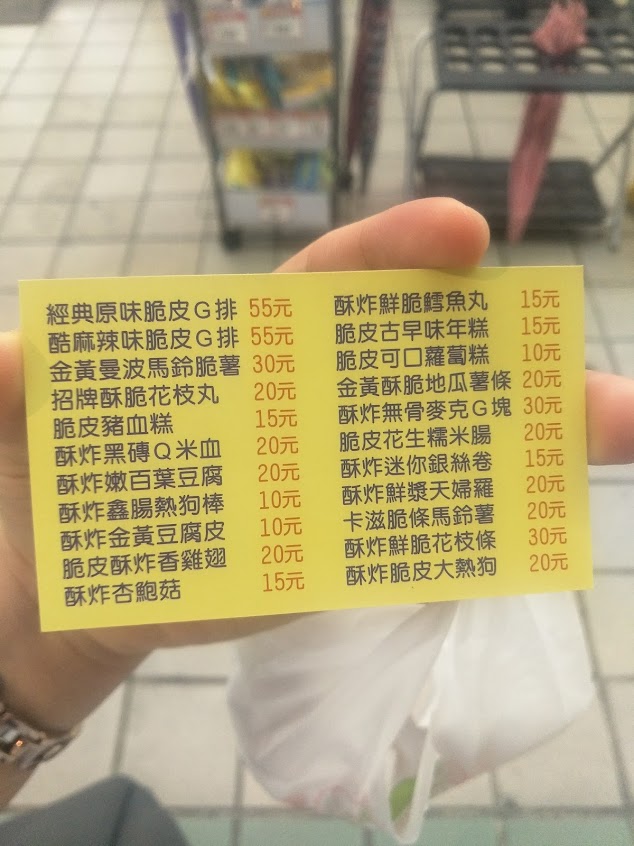 經典原味脆皮G排 55元
酷麻辣味脆皮G排 55元
金黃曼波馬鈴脆薯 30元
招牌酥脆花枝丸 20元
脆皮豬血糕 15元
酥炸黑磚Q米血 20元
酥炸嫩百葉豆腐 20元
酥炸鑫腸熱狗棒 10元
酥炸金黃豆腐皮 10元
脆皮酥炸香雞翅 20元
酥炸杏鮑菇 15元
酥炸鮮脆鱈魚丸 15元
脆皮古早味年糕 15元
脆皮可口蘿蔔糕 10元
金黃酥脆地瓜薯條 20元
酥炸無骨麥克G塊 30元
脆皮花生糯米腸 20元
酥炸迷你銀絲卷 15元
酥炸鮮漿天婦羅 20元
卡滋脆條馬鈴薯 20元
酥炸鮮脆花枝條 30元
酥炸脆皮大熱狗 20元